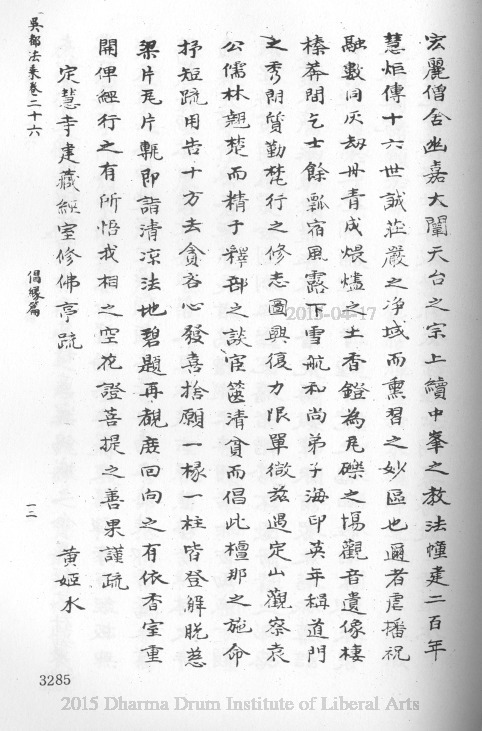 宏麗僧舍幽嘉大闡天台之宗上續中峯之教法幢建二百年
慧炬傳十六世誠莊嚴之净域而熏習之妙區也邇者虐播祝
融數同灰劫丹青成煨燼之土香鐙為瓦礫之場觀音遺像棲
榛莽間乞士餘瓢宿風露下雪航和尚弟子海印英年稱道門
之秀朗質勤梵行之修志圖興復力限單微茲遇定山觀察袁
公儒林翹楚而精于釋部之談宦篋清貧而倡此檀那之施命
抒短疏用告十方去貪吝心發喜捨願一椽一柱皆登解脫慈
梁片瓦片甎即詣清凉法地碧題再觀庶回向之有依香室重
開俾經行之有所悟我相之空花證菩提之善果謹疏
定慧寺建藏經室修佛亭疏
黃姬水
吳都法乘卷二十六
倡緣篇
一二
3285
2015-04-17
2015 Dharma Drum Institute of Liberal Arts